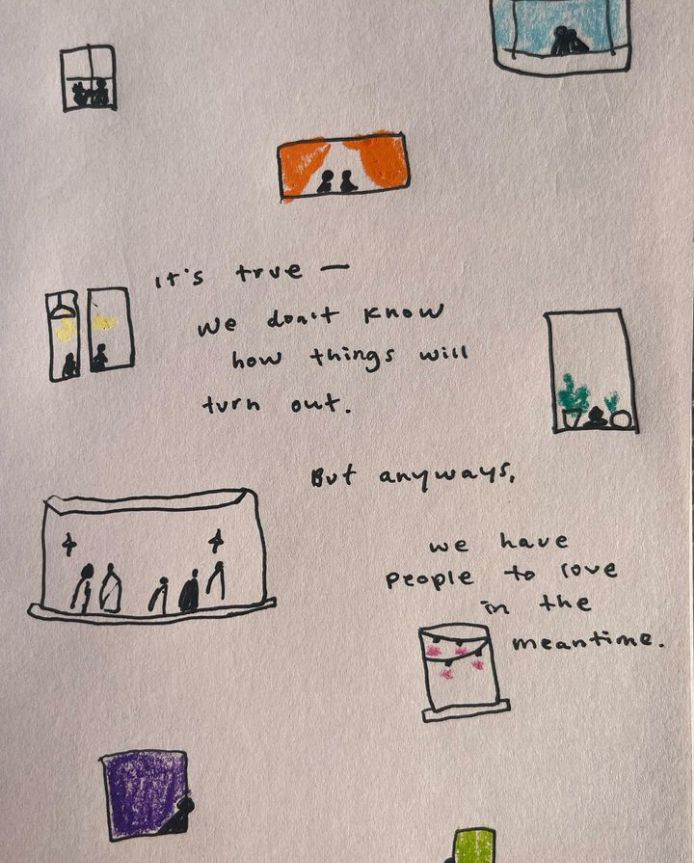 it's true —
we don't know
how things will
turn out.
But anyways,
we have
people to love
in the
meantime.